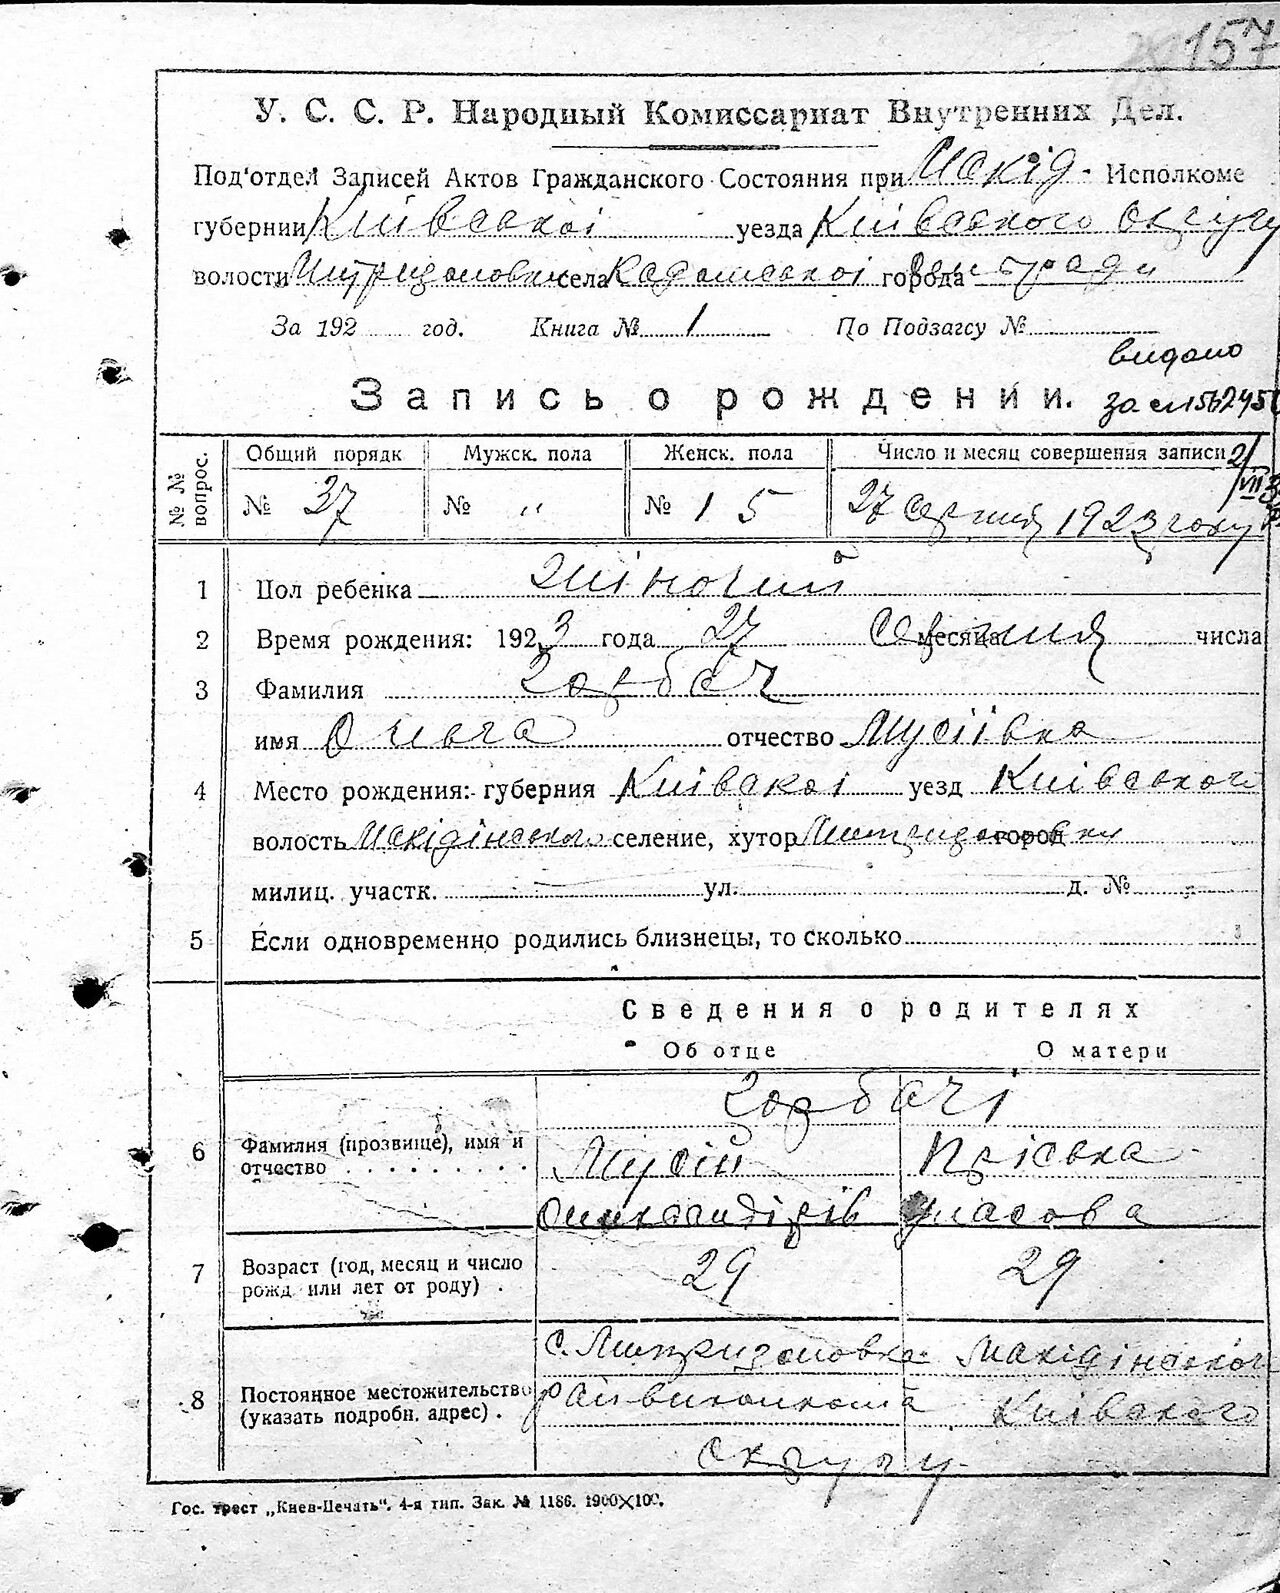 157
У. С. С. Р. Народный Комиссариат Внутренних Дел.
Под'отдел Записей Актов Гражданского Состояния при Макід. Исполкоме
губернии Київської уезда Київського округу
волости села города
За 192 год. Книга № 1 По Подзагсу №
видано
Запись о рождении.
за
№ № вопрос. Общий порядк Мужск. пола Женск. пола Число и месяц совершения записи
№ 37 № „ № 15 27 серпня 1923 року
1 Пол ребенка жіночий
2 Время рождения: 1923 года 27 серпня месяца числа
3 Фамилия Горбач
имя Ольга отчество Мусіївна
4 Место рождения: губерния Київскої уезд Київського
волость Макідінського селение, хутор город
милиц. участк. ул. д. №
5 Если одновременно родились близнецы, то сколько
Сведения о родителях
Об отце О матери
Горбачі
6 Фамилия (прозвище), имя и отчество Мусій Пріська
Олександрів Власова
7 Возраст (год, месяц и число рожд или лет от роду) . 29 29
с. Макідінського
8 Постоянное местожительство (указать подробн. адрес) . райвиконкома Київского
округу
Гос. трест „Киев-Печать“. 4-я тип. Зак. № 1186. 1900×100.